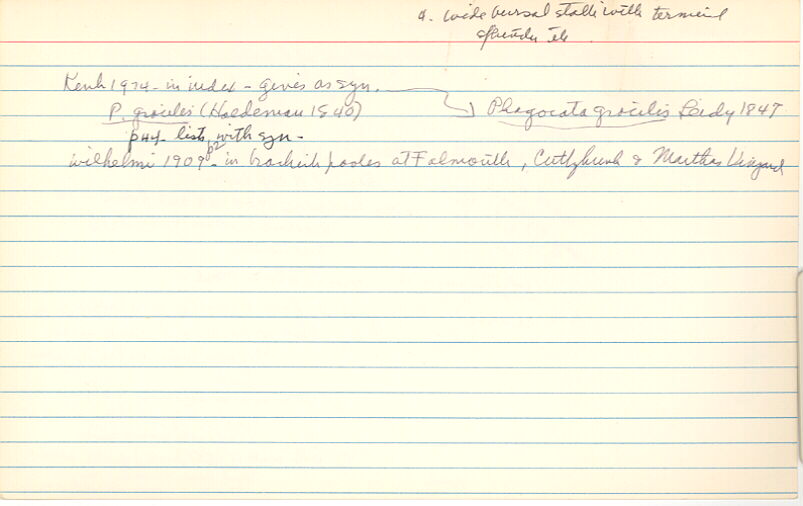 4. wide bursal stalk with terminal
Kenk 1974 - in index - gives as syn.
P. gracilis (Haldeman 1840) Phagocata gracilis Leidy 1847
p44 lists with syn -
Wilhelmi 1909 p2 - in brackish pools at Falmouth, Cuttyhunk & Marthas Vinyard